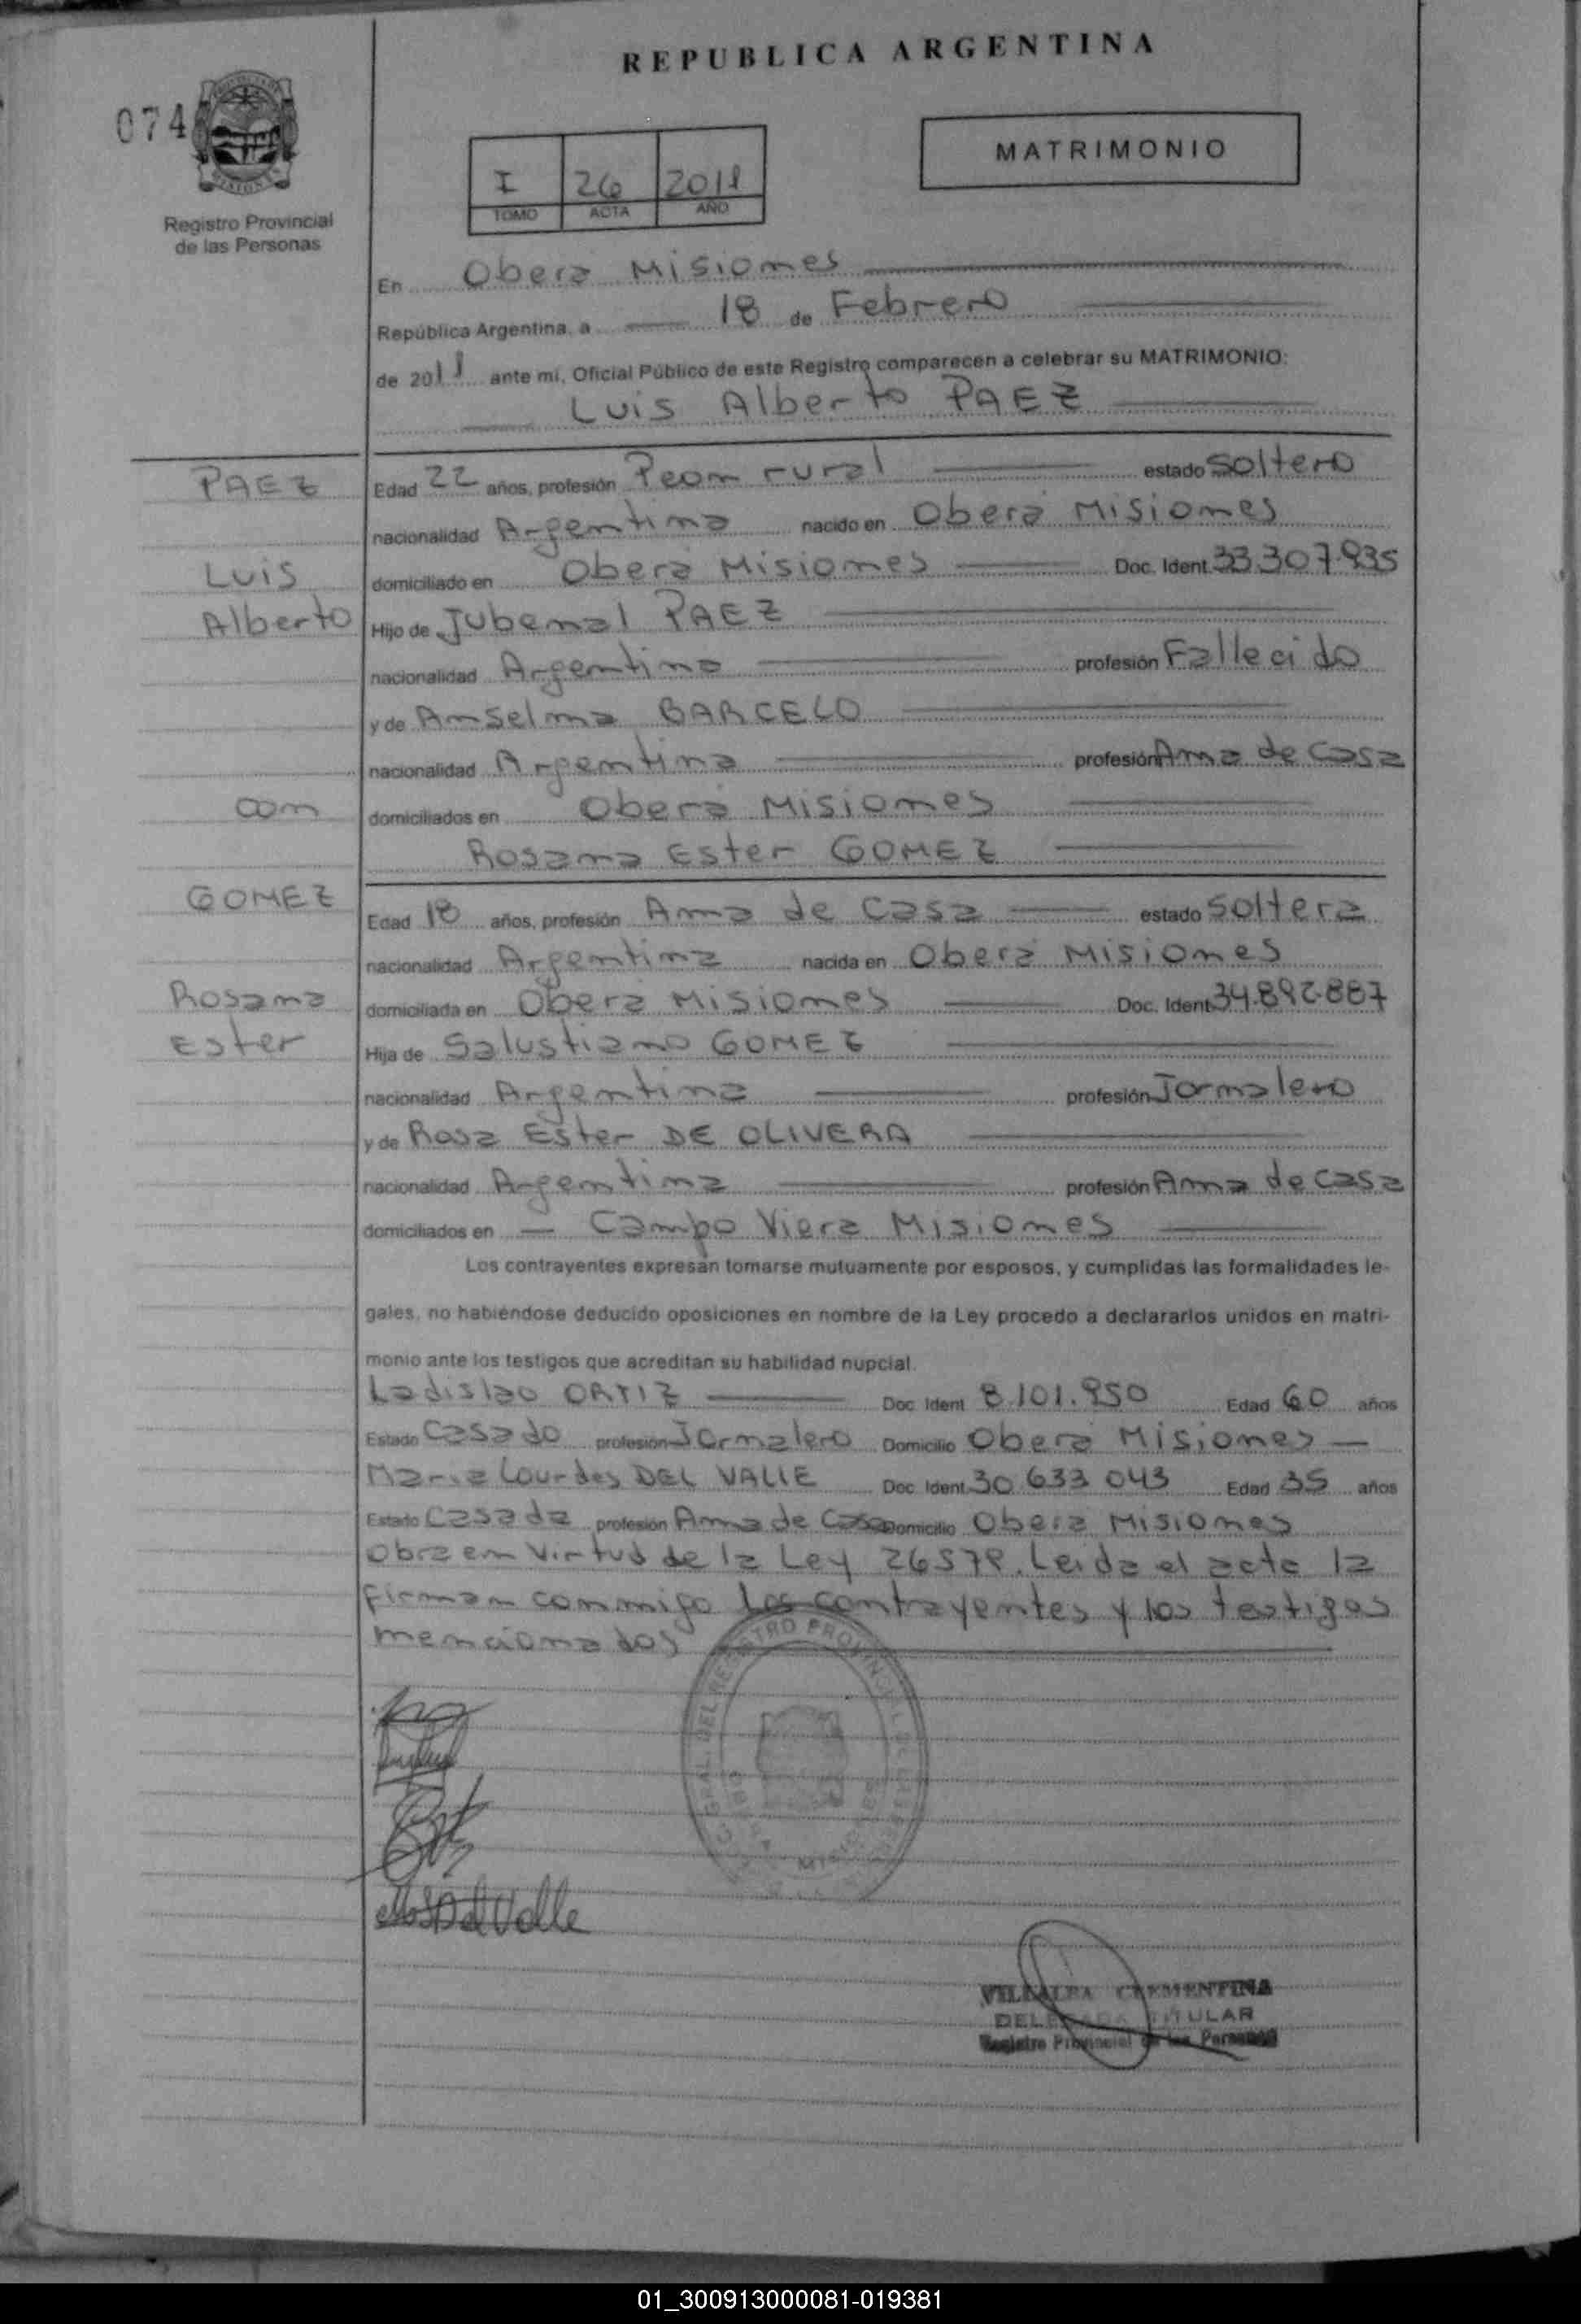 REPUBLICA ARGENTINA
074
MATRIMONIO
I 26 2011
TOMO ACTA AÑO
Registro Provincial
de las Personas
En Obera Misiones
República Argentina, a 18 de Febrero
de 2011 ante mi, Oficial Público de este Registro comparecen a celebrar su MATRIMONIO:
Luis Alberto PAEZ
PAEZ
Edad 22 años, profesión Peon rural estado Soltero
nacionalidad Argentina nacido en Obera Misiones
Luis
domiciliado en Obera Misiones Doc. Ident. 33.307.935
Alberto
Hijo de Jubenal PAEZ
nacionalidad Argentina profesión Fallecido
y de Anselma BARCELO
nacionalidad Argentina profesión Ama de Casa
con
domiciliados en Obera Misiones
Rosana Ester GOMEZ
GOMEZ
Edad 18 años, profesión Ama de Casa estado Soltera
nacionalidad Argentina nacida en Obera Misiones
Rosana
domiciliada en Obera Misiones Doc. Ident. 34.892.887
Ester
Hija de Salustiano GOMEZ
nacionalidad Argentina profesión Jornalero
y de Rosa Ester DE OLIVERA
nacionalidad Argentina profesión Ama de Casa
domiciliados en Campo Viera Misiones
Los contrayentes expresan tomarse mutuamente por esposos, y cumplidas las formalidades le-
gales, no habiéndose deducido oposiciones en nombre de la Ley procedo a declararlos unidos en matri-
monio ante los testigos que acreditan su habilidad nupcial.
Ladislao ORTIZ Doc. Ident. 8.101.950 Edad 60 años
Estado Casado profesión Jornalero Domicilio Obera Misiones
Maria Lourdes DEL VALLE Doc. Ident. 30.633 043 Edad 35 años
Estado Casada profesión Ama de Casa Domicilio Obera Misiones
Obra en Virtud de la Ley 26579. Leida el acta la
Firman conmigo los contrayentes y los testigos
mencionados
Del Valle
VILLALBA CLEMENTINA
DELEGADA TITULAR
Registro Provincial de las Personas
01_300913000081-019381